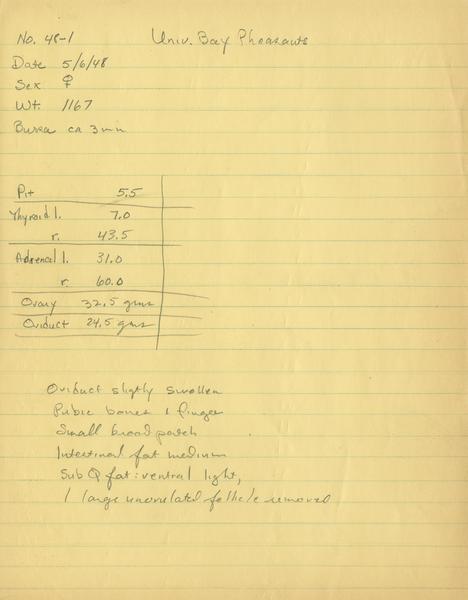 No. 48-1 Univ. Bay Pheasants
Date 5/6/48
Sex ♀
Wt. 1167
Bursa ca 3mm
Pit 5.5
Thyroid l. 7.0
r. 43.5
Adrenal l. 31.0
r. 60.0
Ovary 32.5 gms
Oviduct 24.5 gms
Oviduct sligtly swollen
Pubic bones 1 finger
Small brood patch
Intestinal fat medium
Sub Q fat: ventral light,
1 large unovulated follicle removed